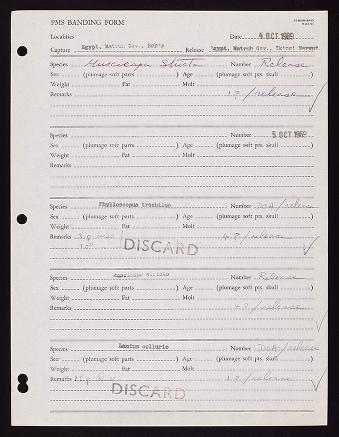 PMS BANDING FORM
Localities Date 4 OCT 1969
Capture Egypt, Matruh Gov., Release Egypt, Matruh Gov., Ikingi
Species Muscicapa Striata Number Release
Sex (plumage soft parts ) Age (plumage soft pts. skull )
Weight Fat Molt
Remarks 1 ? /release
Species Number 5 OCT 1969
Sex (plumage soft parts ) Age (plumage soft pts. skull )
Weight Fat Molt
Remarks
Species Phylloscopus trochilus Number DOA/release
Sex (plumage soft parts ) Age (plumage soft pts. skull )
Weight Fat Molt
Remarks 4 ? /release
DISCARD
Species Number Release
Sex (plumage soft parts ) Age (plumage soft pts. skull )
Weight Fat Molt
Remarks /release
Species Lanius collurio Number DOA/release
Sex (plumage soft parts ) Age (plumage soft pts. skull )
Weight Fat Molt
Remarks 1 ? /release
DISCARD